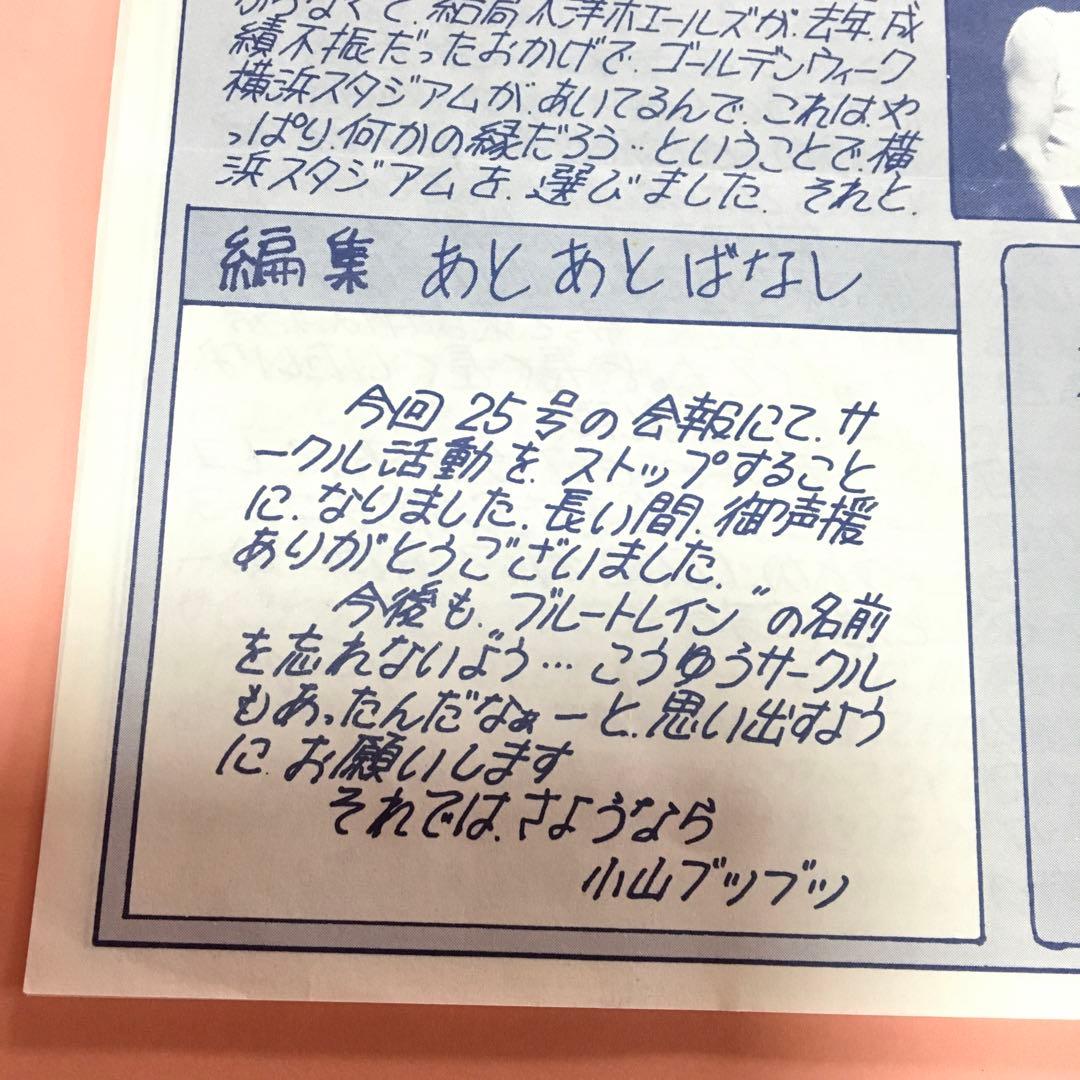 なくて、結局大洋ホエールズが、去年、成
績不振だったおかげで、ゴールデンウィーク
横浜スタジアムが、あいてるんで、これは、や
っぱり、何かの縁だろう‥ということで、横
浜スタジアムを、選びました。それと、
編集 あとあとばなし
今回25号の会報にて、サ
ークル活動を、ストップすること
に、なりました、長い間、御声援
ありがとうございました。
今後も、"ブルートレイン"の名前
を忘れないよう…こうゆうサークル
もあったんだなぁーと、思い出すよう
に、お願いします
それでは、さようなら
小山ブツブツ